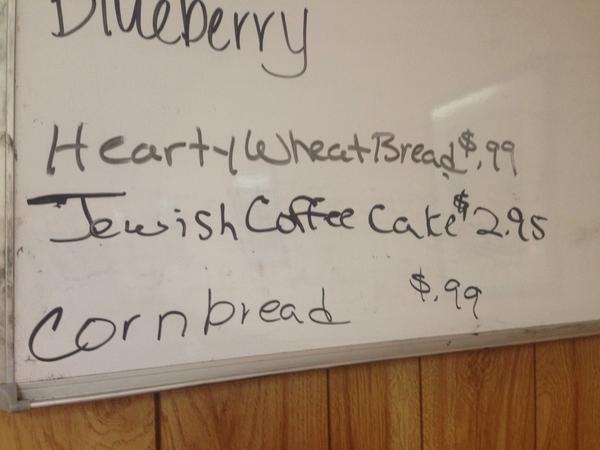 Blueberry
Hearty Wheat Bread $.99
Jewish Coffee Cake $2.95
Cornbread $.99